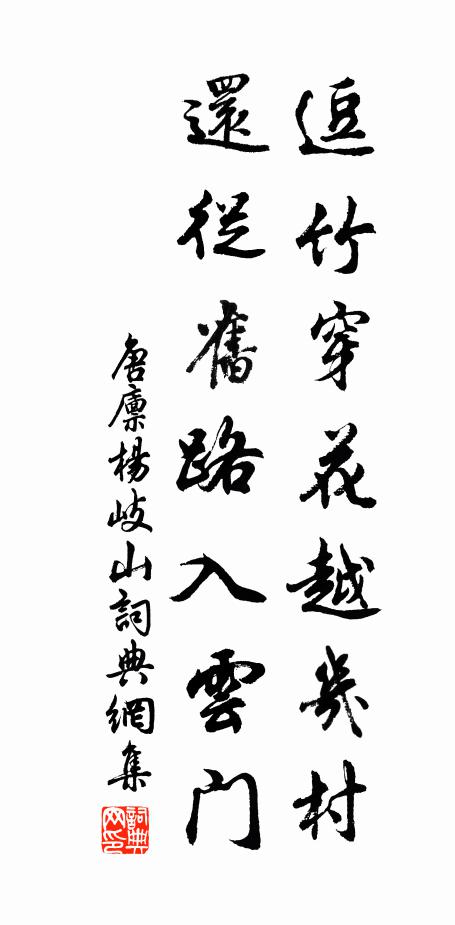 逗竹穿花越幾村
還從舊路入雲門
唐廪楊岐山詞典網集
詞典网印